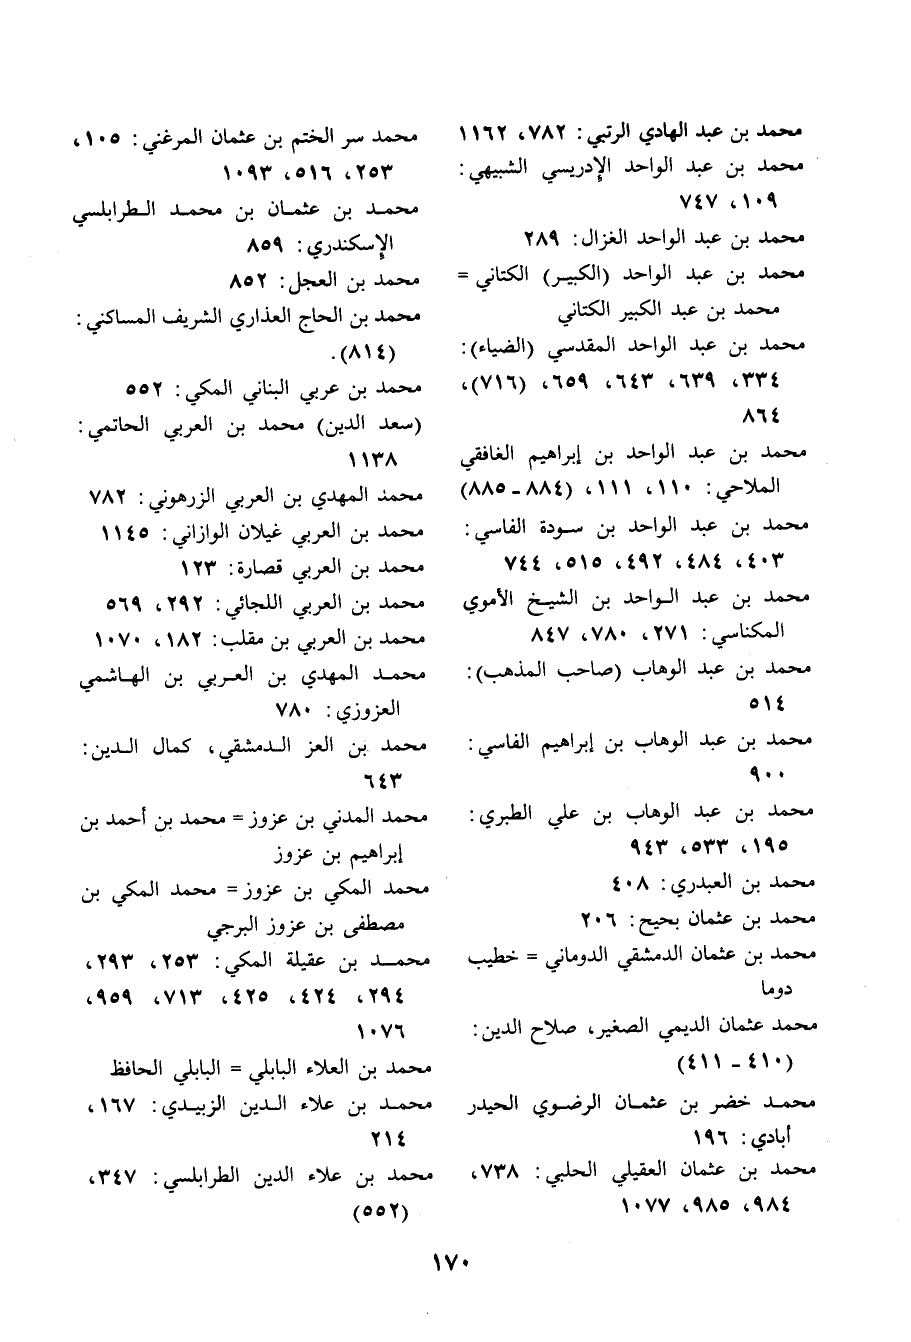 محمد بن عبد الهادي الرتبي: ٧٨٢، ١١٦٢
محمد بن عبد الواحد الإدريسي الشبيهي:
١٠٩، ٧٤٧
محمد بن عبد الواحد الغزال: ٢٨٩
محمد بن عبد الواحد (الكبير) الكتاني =
محمد بن عبد الكبير الكتاني
محمد بن عبد الواحد المقدسي (الضياء):
٣٣٤، ٦٣٩، ٦٤٣، ٦٥٩، (٧١٦)،
٨٦٤
محمد بن عبد الواحد بن إبراهيم الغافقي
الملاحي: ١١٠، ١١١، (٨٨٤ - ٨٨٥)
محمد بن عبد الواحد بن سودة الفاسي:
٤٠٣، ٤٨٤، ٤٩٢، ٥١٥، ٧٤٤
محمد بن عبد الواحد بن الشيخ الأموي
المكناسي: ٢٧١، ٧٨٠، ٨٤٧
محمد بن عبد الوهاب (صاحب المذهب):
٥١٤
محمد بن عبد الوهاب بن إبراهيم الفاسي:
٩٠٠
محمد بن عبد الوهاب بن علي الطبري:
١٩٥، ٥٣٣، ٩٤٣
محمد بن العبدري: ٤٠٨
محمد بن عثمان بحيح: ٢٠٦
محمد بن عثمان الدمشقي الدوماني = خطيب
دوما
محمد عثمان الديمي الصغير، صلاح الدين:
(٤١٠ - ٤١١)
محمد خضر بن عثمان الرضوي الحيدر
أبادي: ١٩٦
محمد بن عثمان العقيلي الحلبي: ٧٣٨،
٩٨٤، ٩٨٥، ١٠٧٧
محمد سر الختم بن عثمان المرغني: ١٠٥،
٢٥٣، ٥١٦، ١٠٩٣
محمد بن عثمان بن محمد الطرابلسي
الإسكندري: ٨٥٩
محمد بن العجل: ٨٥٢
محمد بن الحاج العذاري الشريف المساكني:
(٨١٤).
محمد بن عربي البناني المكي: ٥٥٢
(سعد الدين) محمد بن العربي الحاتمي:
١١٣٨
محمد المهدي بن العربي الزرهوني: ٧٨٢
محمد بن العربي غيلان الوازاني: ١١٤٥
محمد بن العربي قصارة: ١٢٣
محمد بن العربي اللجائي: ٢٩٢، ٥٦٩
محمد بن العربي بن مقلب: ١٨٢، ١٠٧٠
محمد المهدي بن العربي بن الهاشمي
العزوزي: ٧٨٠
محمد بن العز الدمشقي، كمال الدين:
٦٤٣
محمد المدني بن عزوز = محمد بن أحمد بن
إبراهيم بن عزوز
محمد المكي بن عزوز = محمد المكي بن
مصطفى بن عزوز البرجي
محمد بن عقيلة المكي: ٢٥٣، ٢٩٣،
٢٩٤، ٤٢٤، ٤٢٥، ٧١٣، ٩٥٩،
١٠٧٦
محمد بن العلاء البابلي = البابلي الحافظ
محمد بن علاء الدين الزبيدي: ١٦٧،
٢١٤
محمد بن علاء الدين الطرابلسي: ٣٤٧،
(٥٥٢)
١٧٠